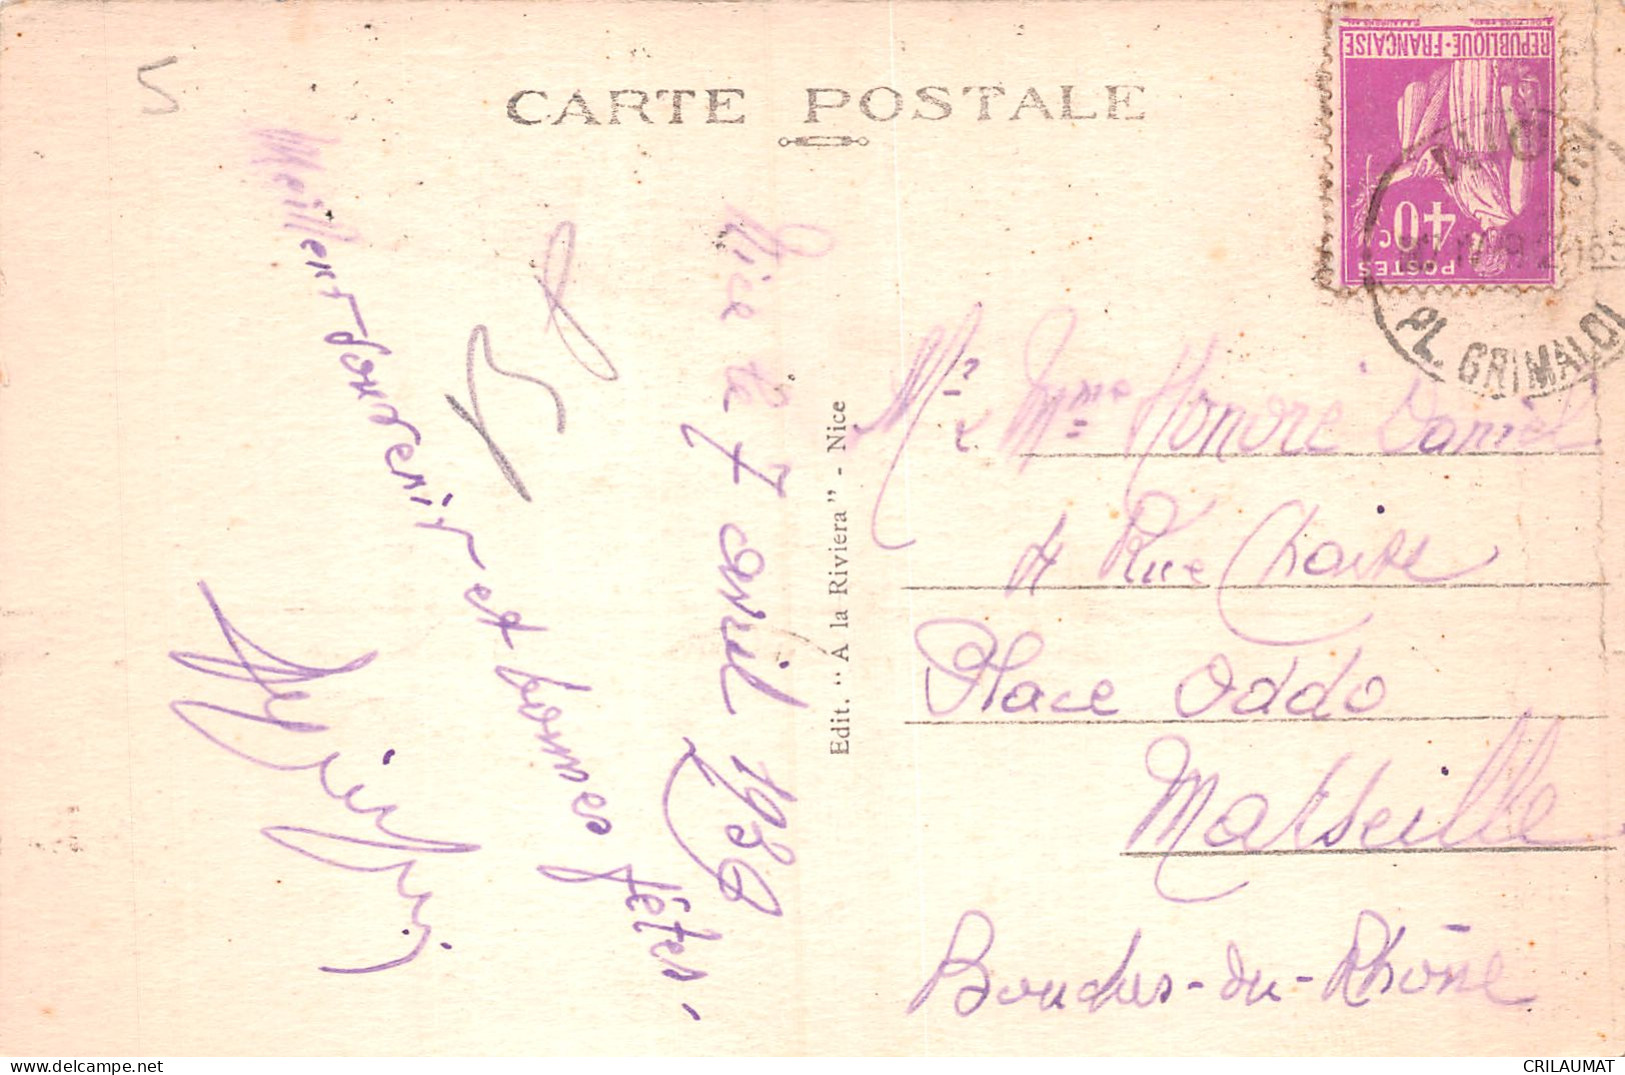 5
CARTE POSTALE
REPUBLIQUE-FRANÇAISE
40c
POSTES
PL. GRIMALDI
Nice le 7 avril 1939
Meilleur souvenir et bonnes fêtes.
Edit. "A la Riviera" - Nice
Mr & Mme Honoré Daniel
4 Rue Chaise
Place Oddo
Marseille
Bouches-du-Rhône
CRILAUMAT